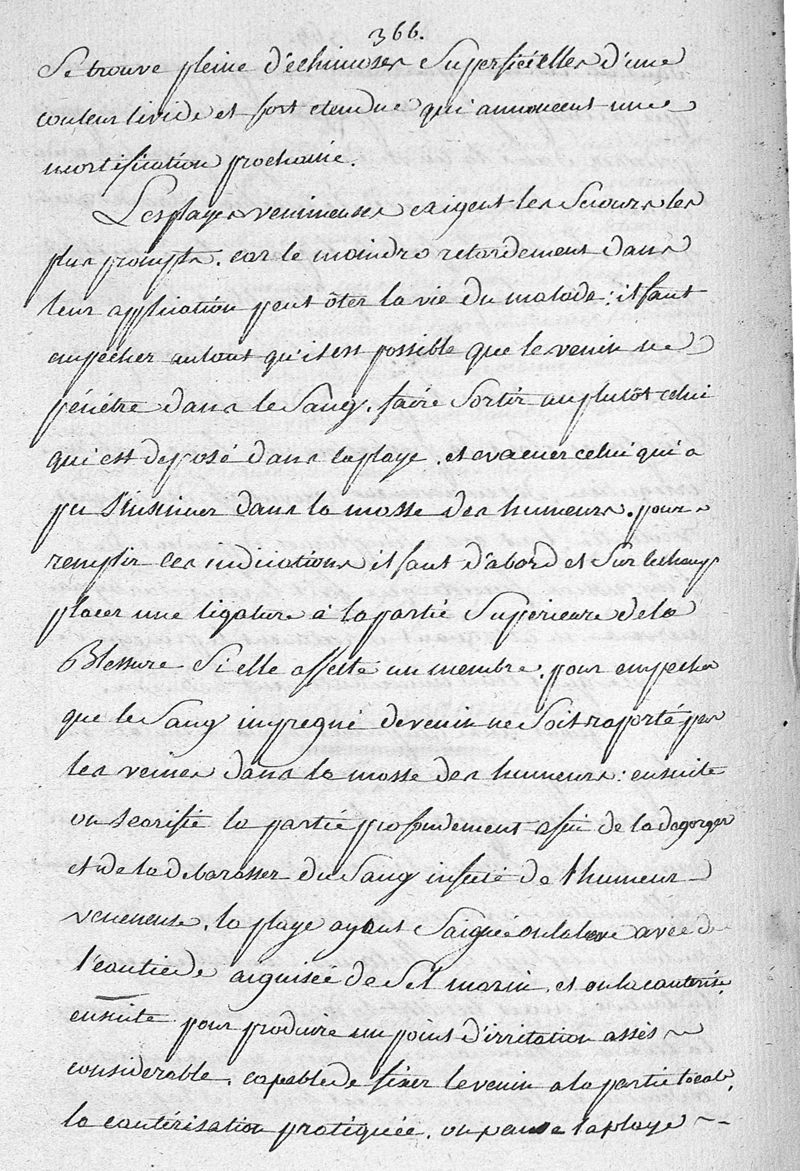 366.
Se trouve pleine d'échimoses Superficielles d'une
couleur livide et fort etendue qui annoncent une
mortification prochaine.
Les playes venimeuses exigent les Secours les
plus prompts. car le moindre retardement dans
leur application peut ôter la vie du malade: il faut
empecher autant qu'il est possible que le venin ne
pénétre dans le Sang. faire Sortir au plutôt celui
qui est deposé dans la playe. et evacuer celui qui a
pu S'insinuer dans la masse des humeurs. pour
remplir ces indications il faut d'abord et Sur le champ
placer une ligature à la partie Superieure de la
Blessure Si elle affecte un membre. pour empecher
que le Sang impregné de venin ne Soit raporté par
les veines dans la masse des humeurs: ensuite
on scarifie la partie profondement afin de la degorger
et de la debarasser du Sang infecté de l'humeur
veneneuse. la playe ayant Saignée on la lave avec de
l'eau tiede aiguisée de Sel marin. et on la cauterise
ensuite pour produire un point d'irritation assés
considerable. capable de fixer le venin a la partie locale.
la cautérisation pratiquée. on panse la playe